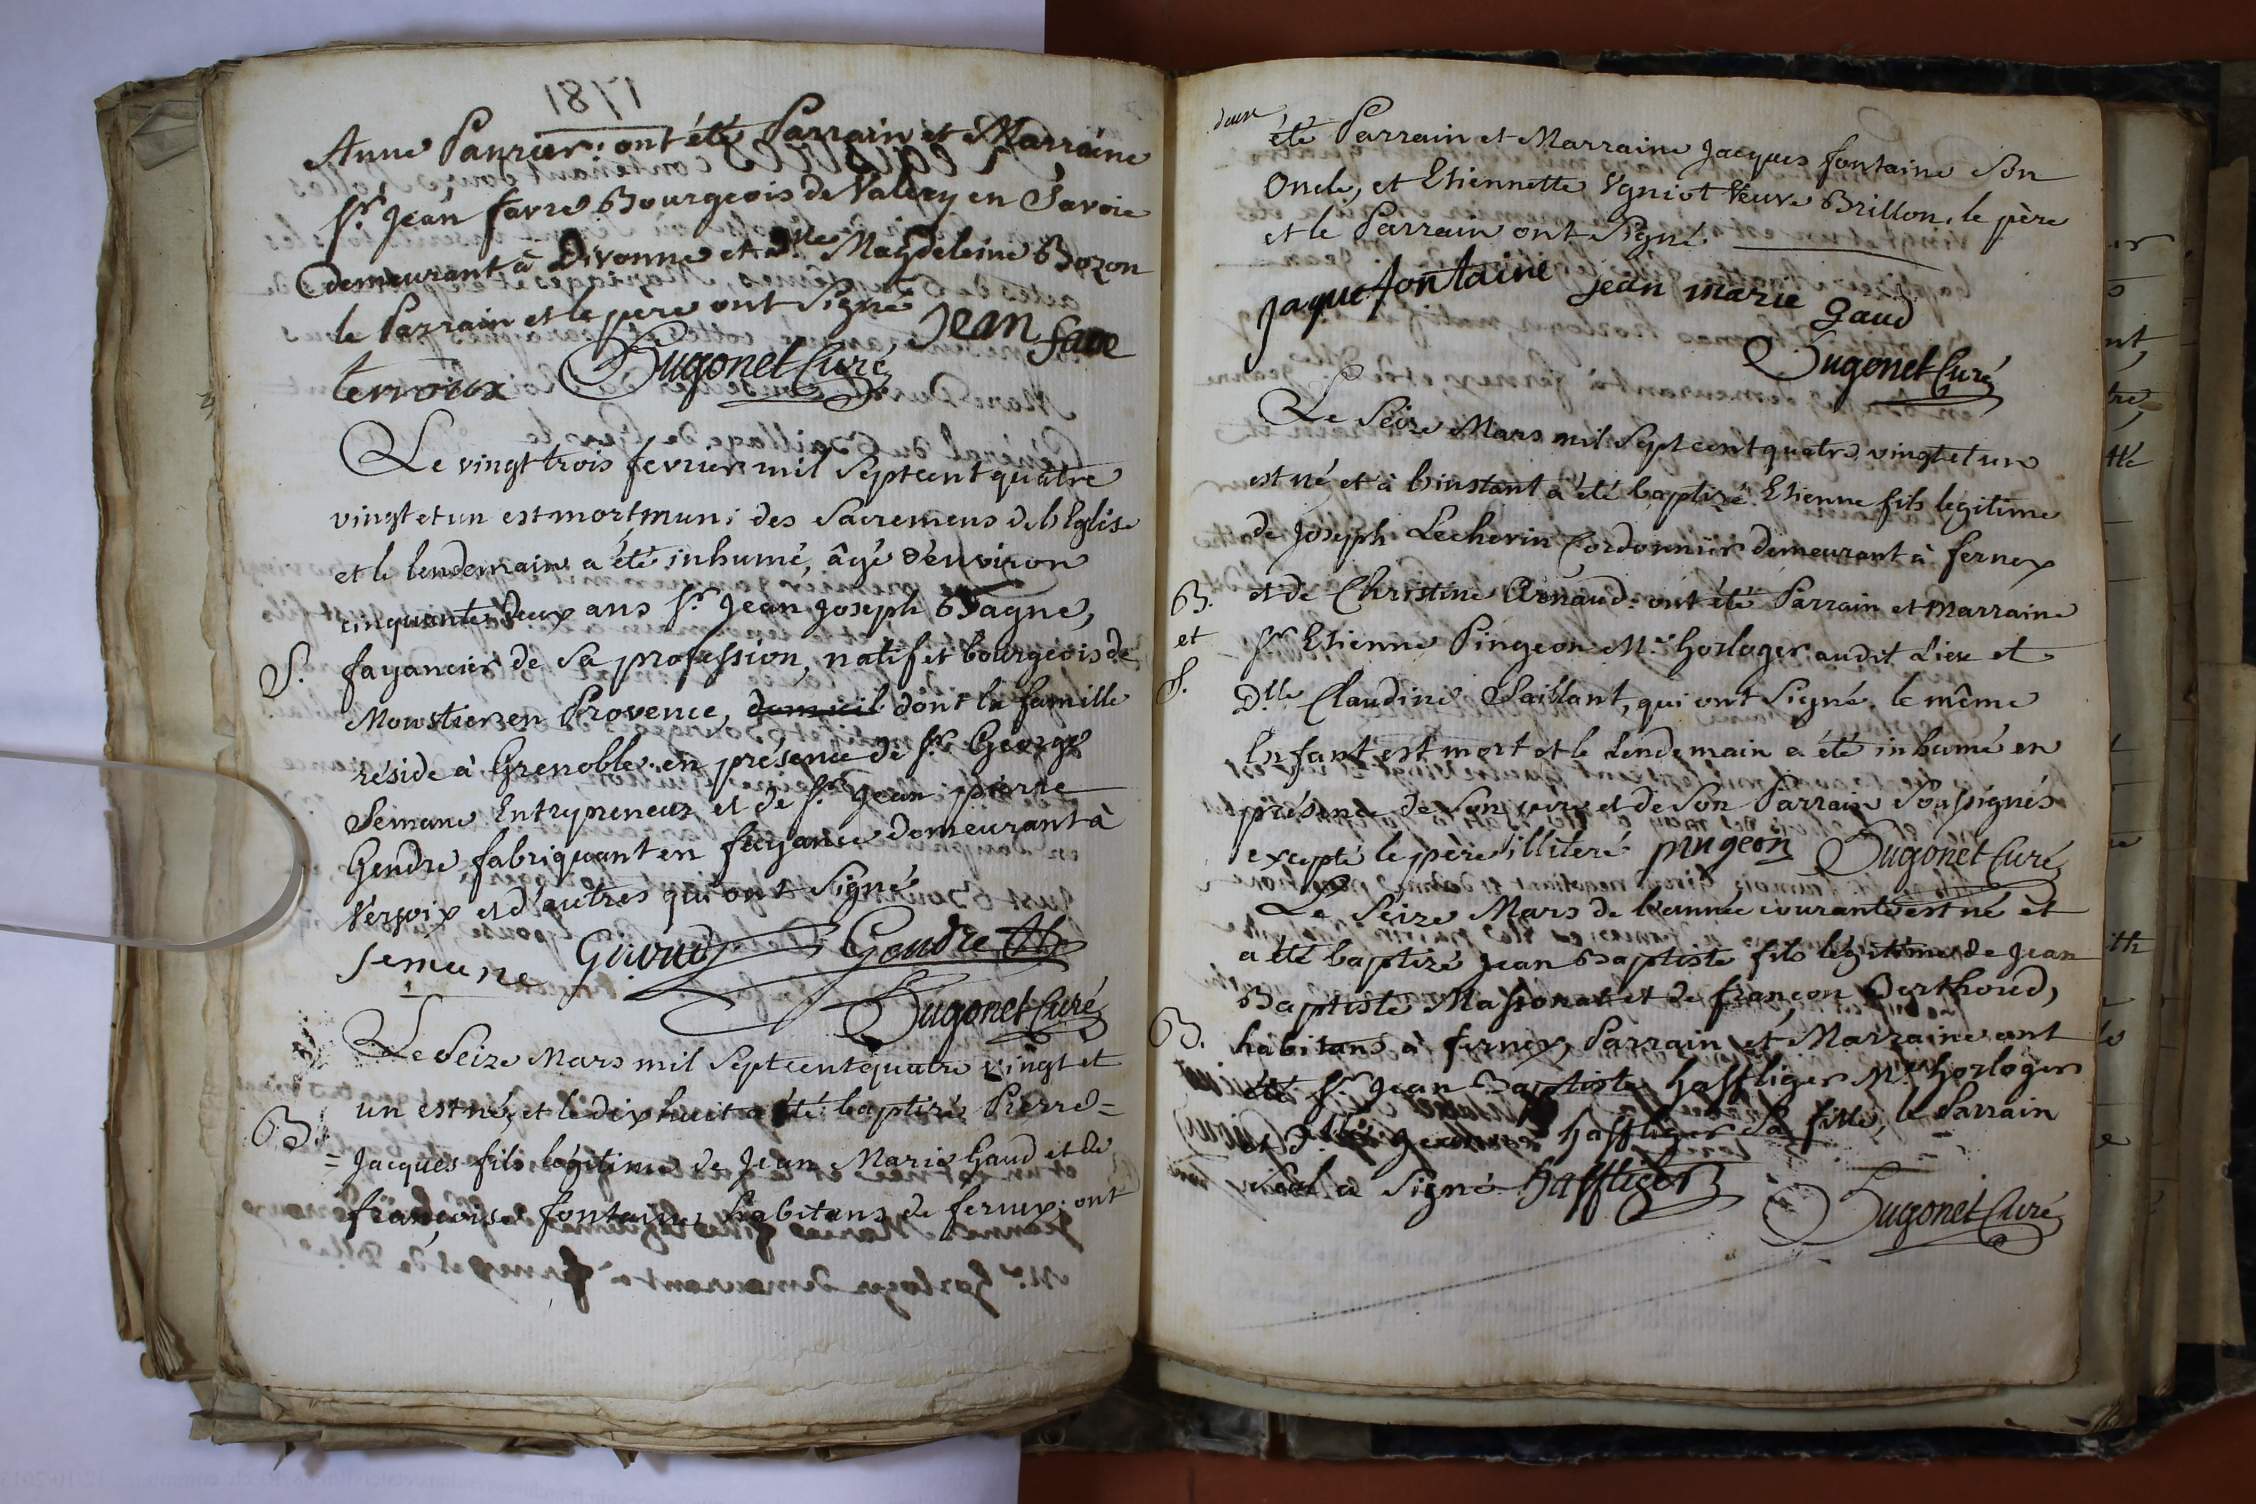 Anne Panrier; ont été Parrain et Marraine
Sr. Jean favre Bourgeois de Valery en Savoie
demeurant à Divonne et Dlle Magdeleine Bozon
le Parrain et le pere ont Signé
Jean favre
terroux Hugonet Curé
Le vingt trois fevrier mil Sept cent quatre
vingt et un est mort, muni des Sacremens de l'Eglise
et le lendemain a été inhumé, âgé d'environ
cinquante deux ans Sr. Jean Joseph Bagne,
S. fayancier de Sa profession, natif et bourgeois de
Moustier en Provence, dont la famille
réside à Grenoble. en présence de Sr. George
Semene Entrepreneur et de Sr. Jean pierre
Gendre fabriquant en fayance demeurant à
Versoix et d'autres qui ont Signé
Semene Gendre
Hugonet Curé
Le Seize Mars mil Sept cent quatre vingt et
un est né, et le dix huit a été baptizé Pierre=
B. =Jacques fils légitime de Jean Marie Gaud et de
françoise fontaine, habitans de fernex; ont
deux
été Parrain et Marraine Jacques fontaine Son
Oncle, et Etiennette Vgniot Veuve Brillon. le père
et le Parrain ont Signé.
Jaque fontaine jean marie gaud
Hugonet Curé
Le Seize Mars mil Sept cent quatre vingt et un
est né et à l'instant a été baptizé Etienne fils legitime
de Joseph Lecherin Cordonnier demeurant à fernex
B. et de Christine Arnaud. ont été Parrain et Marraine
et Sr. Etienne Pingeon Me. horloger audit Lieu et
S. Dlle Claudine Saillant, qui ont Signé. le même
Enfant est mort et le Lendemain a été inhumé en
présence de Son père et de Son Parrain Soussignés
excepté le père illiteré. pingeon Hugonet Curé
Le Seize Mars de l'année courante est né et
a été baptizé Jean Baptiste fils légitime de Jean
Baptiste Massonat et de françon Berthoud,
B. habitans à fernex, Parrain et Marraine ont
été Sr. Jean Baptiste haffliger Me. horloger
et Dlle haffliger Sa fille; le Parrain
Seul a Signé. haffliger
Hugonet Curé